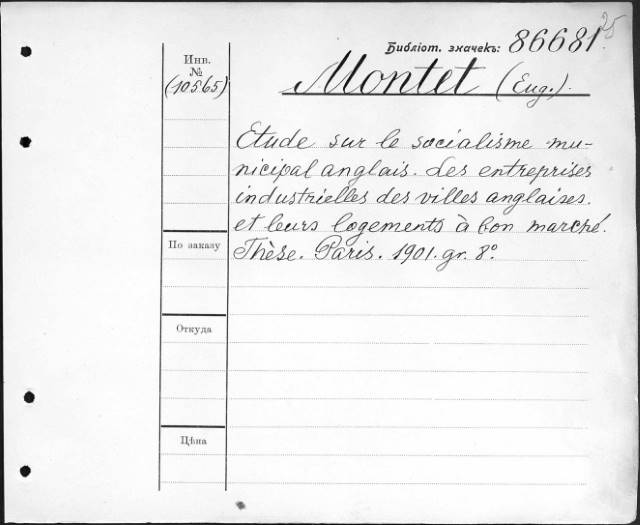 25
Библіот. значекъ: 86681
Инв.
№
(10565)
Montet (Eug.).
Etude sur le socialisme mu-
nicipal anglais. Les entreprises
industrielles des villes anglaises.
et leurs logements à bon marché.
Thèse. Paris. 1901. gr. 8º
По заказу
Откуда
Цѣна